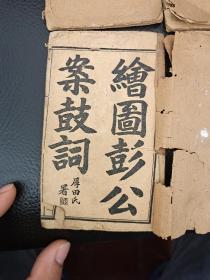 繪圖彭公
案鼓詞
厚田氏
署